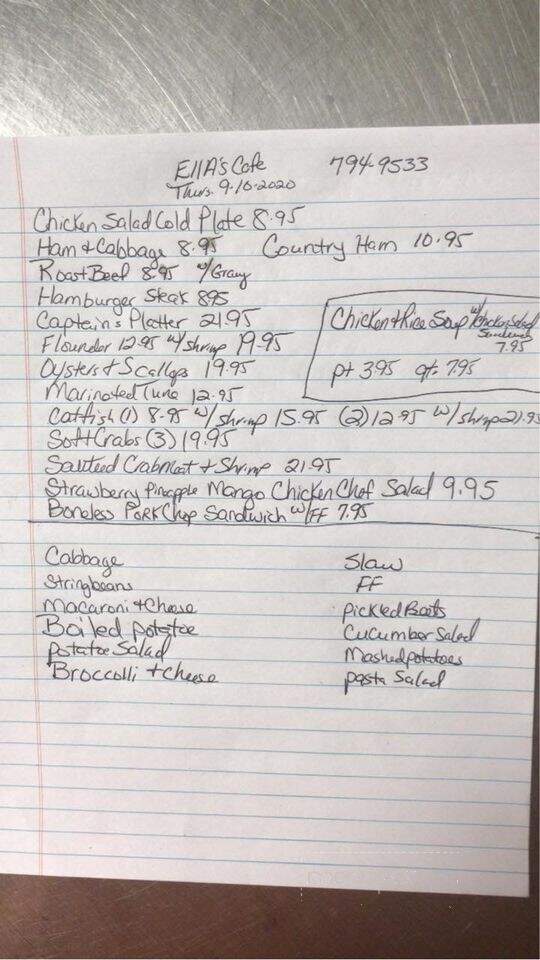 Ella's Cafe 794-9533
Thurs. 9-10-2020
Chicken Salad Cold Plate 8.95
Ham + Cabbage 8.95 Country Ham 10.95
Roast Beef 8.95 w/Gravy
Hamburger Steak 895
Captain's Platter 21.95
Flounder 12.95 w/shrimp 19.95
Oysters + Scallops 19.95
Marinated Tuna 12.95
Catfish (1) 8.95 w/shrimp 15.95 (2) 12.95 w/shrimp 21.95
Soft Crabs (3) 19.95
Sautéed Crabmeat + Shrimp 21.95
Strawberry Pineapple Mango Chicken Chef Salad 9.95
Boneless Pork Chop Sandwich w/FF 7.95
Chicken + Rice Soup w/Chicken Salad
Sandwich
7.95
pt 3.95 qt. 7.95
Cabbage Slaw
Stringbeans FF
Macaroni + Cheese Pickled Beets
Boiled potatoe Cucumber Salad
Potatoe Salad Mashed potatoes
Broccolli + cheese pasta Salad